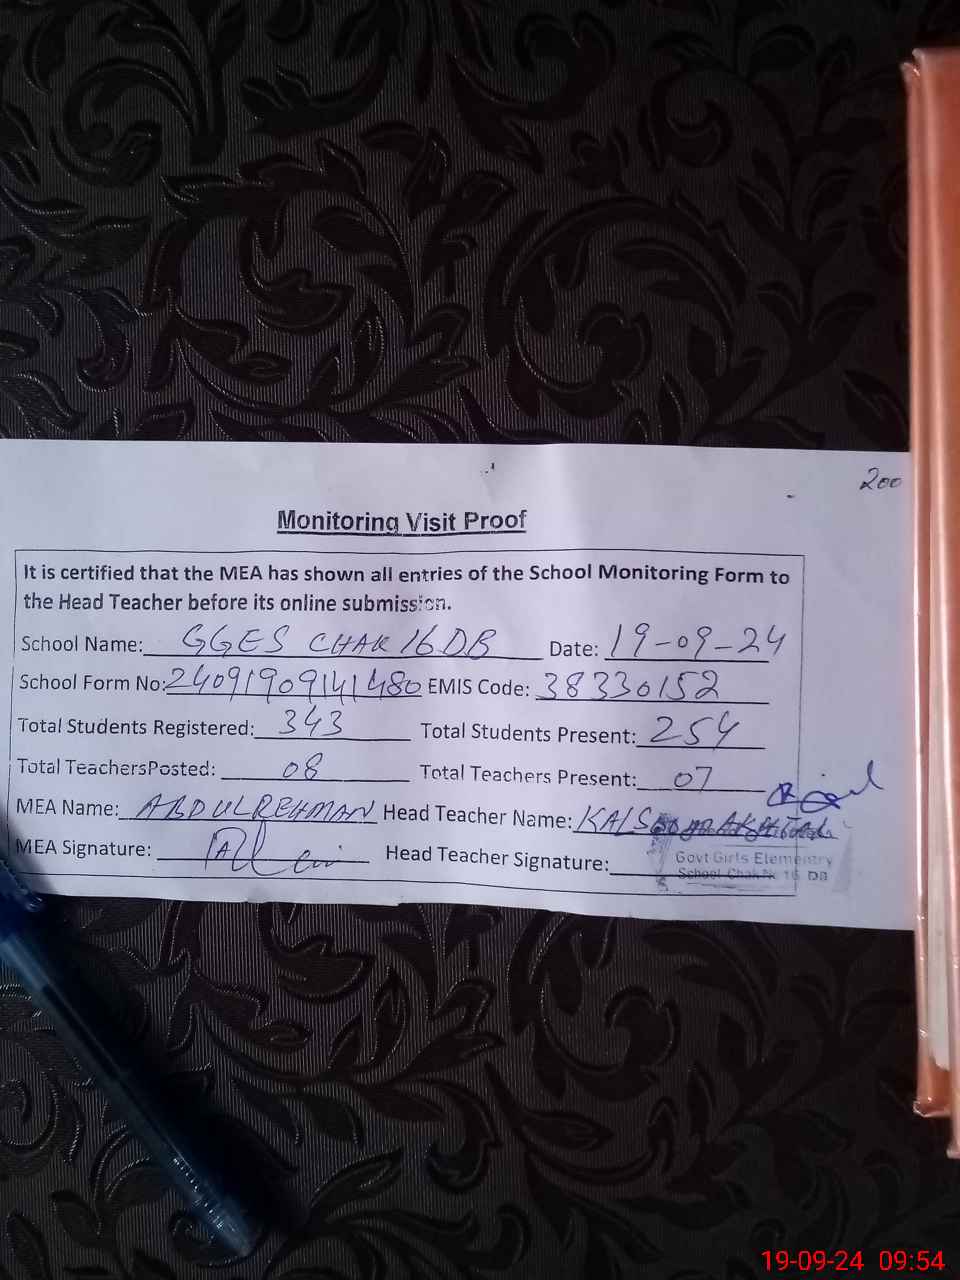 200
Monitoring Visit Proof
It is certified that the MEA has shown all entries of the School Monitoring Form to
the Head Teacher before its online submission.
School Name: GGES CHAK 16 DB Date: 19-09-24
School Form No: 24091909141480 EMIS Code: 38330152
Total Students Registered: 343 Total Students Present: 254
Total TeachersPosted: 08 Total Teachers Present: 07
MEA Name: ABDULREHMAN Head Teacher Name: KALSOOM AKHTAR
MEA Signature: Head Teacher Signature:
Govt Girls Elementry
School Chak № 16 DB
19-09-24 09:54